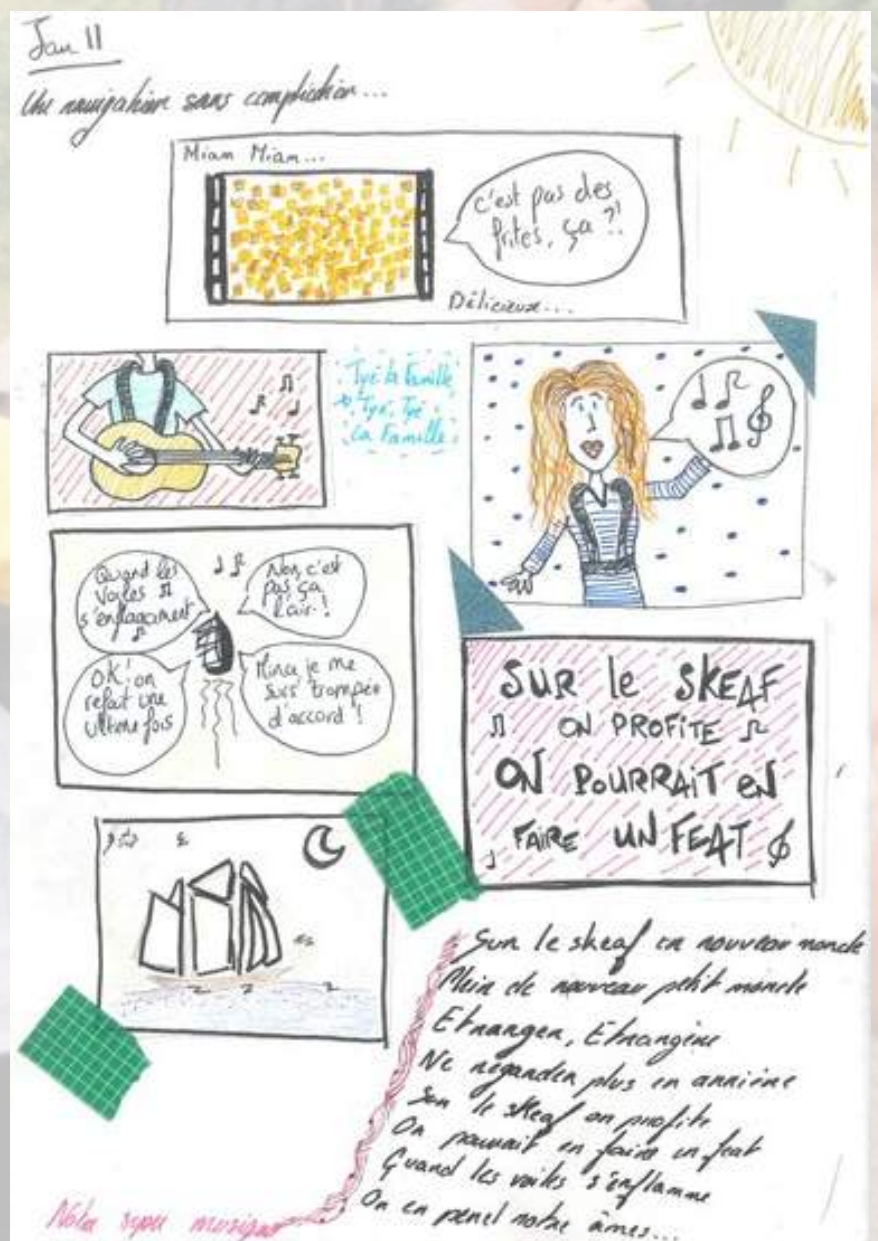 Jour 11
Une navigation sans complication...
Miam Miam...
c'est pas des
frites, ça ?!
Délicieuse...
Tyé la Famille
Tyé, Tyé
La Famille
Quand les
voiles
s'enflagament
Non, c'est
pas ça
l'air !
OK ! on
refait une
ultime fois
Mince je me
suis trompée
d'accord !
SUR le SKEAF
ON PROFITE
ON POURRAIT EN
FAIRE UN FEAT
Sur le skeaf un nouveau monde
Plein de nouveau petit monde
Etranger, Etrangère
Ne regarder plus en arrière
Sur le skeaf on profite
On pourrait en faire un feat
Quand les voiles s'enflamme
On en perd notre âmes...
Notre super musique